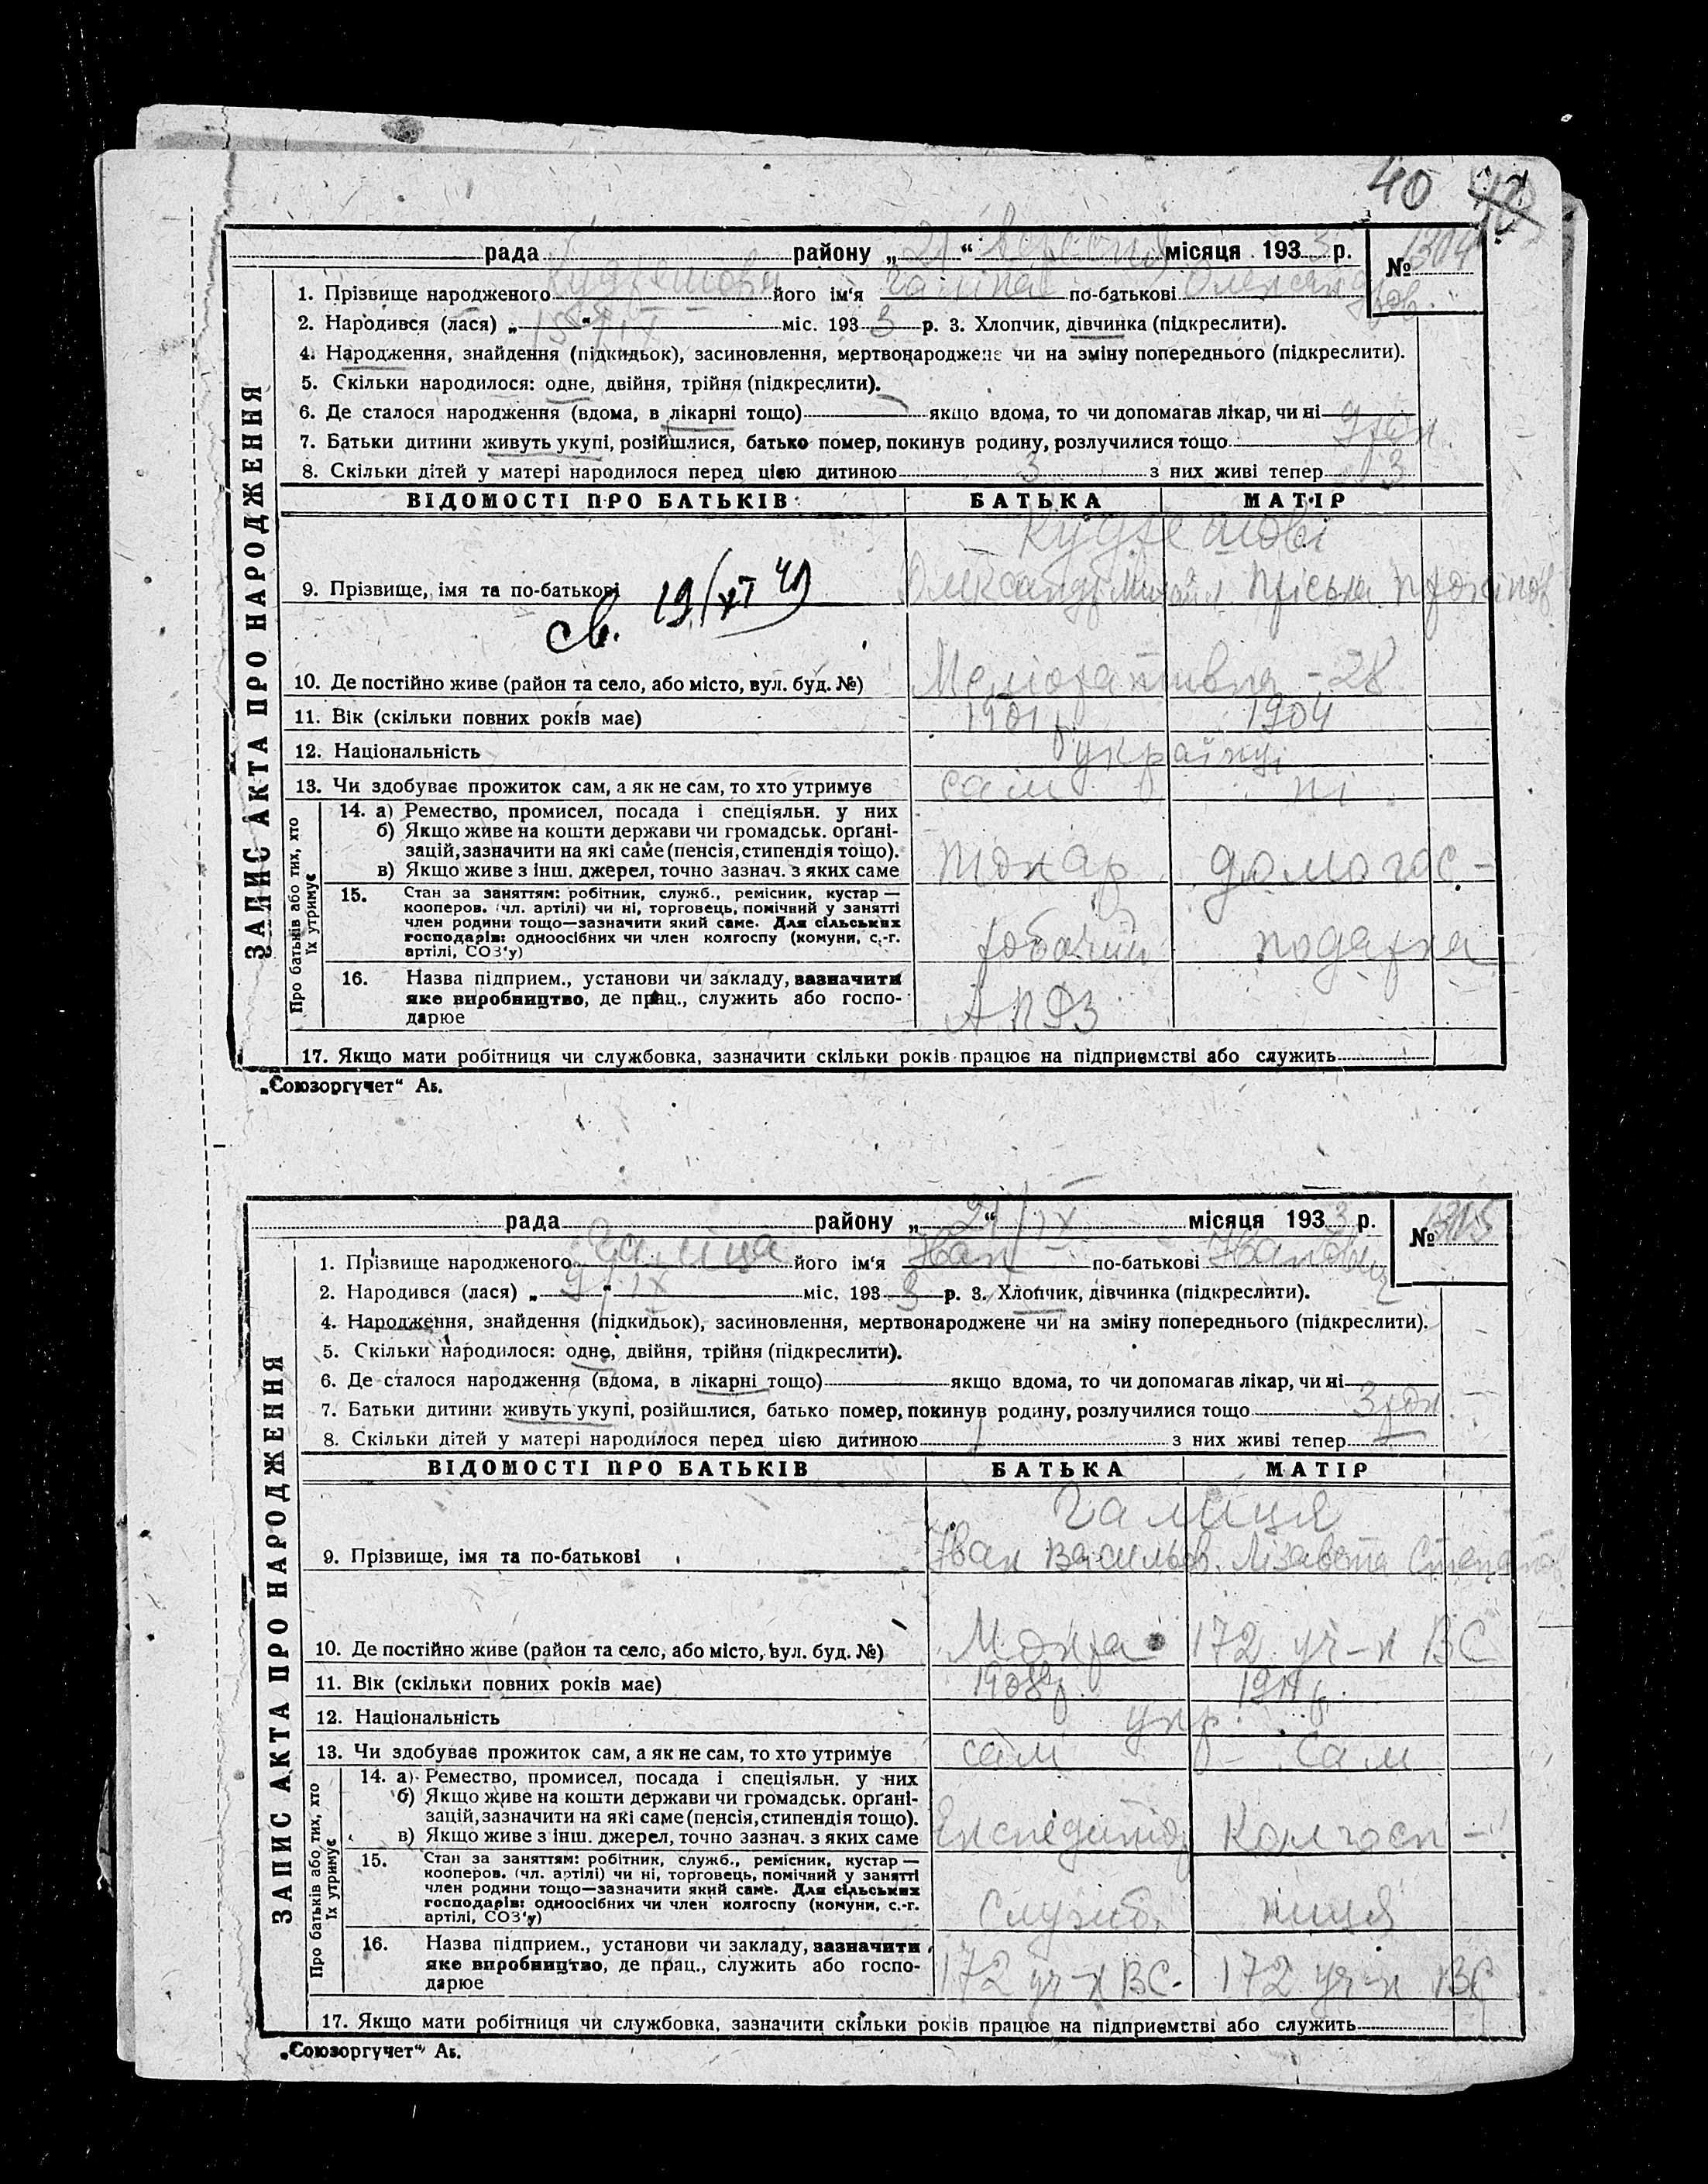 40
рада району „21“ вересня місяця 1933 р. № 1304
1. Прізвище народженого його ім'я по-батькові Олександров.
2. Народився (лася) „15“ IX міс. 1933 р. 3. Хлопчик, дівчинка (підкреслити).
4. Народження, знайдення (підкидьок), засиновлення, мертвонароджене чи на зміну попереднього (підкреслити).
5. Скільки народилося: одне, двійня, трійня (підкреслити).
6. Де сталося народження (вдома, в лікарні тощо) якщо вдома, то чи допомагав лікар, чи ні
7. Батьки дитини живуть укупі, розійшлися, батько помер, покинув родину, розлучилися тощо
8. Скільки дітей у матері народилося перед цією дитиною 3 з них живі тепер 3
ЗАПИС АКТА ПРО НАРОДЖЕННЯ
ВІДОМОСТІ ПРО БАТЬКІВ БАТЬКА МАТІР
9. Прізвище, імя та по-батькові Олександр Михайл Пріська
св. 19/XI 49
10. Де постійно живе (район та село, або місто, вул. буд. №) Меліоративна - 28
11. Вік (скільки повних років має) 1901 р. 1904
12. Національність українці
13. Чи здобуває прожиток сам, а як не сам, то хто утримує сам ні
Про батьків або тих, хто їх утримує
14. а) Ремество, промисел, посада і спеціяльн. у них
б) Якщо живе на кошти держави чи громадськ. орґані-
зацій, зазначити на які саме (пенсія, стипендія тощо).
в) Якщо живе з інш. джерел, точно зазнач. з яких саме
токар домогос-
15. Стан за заняттям: робітник, служб., ремісник, кустар —
кооперов. (чл. артілі) чи ні, торговець, помічний у занятті
член родини тощо—зазначити який саме. Для сільських
господарів: одноосібних чи член колгоспу (комуни, с.-г.
артілі, СОЗ'у)
робочий подарка
16. Назва підприєм., установи чи закладу, зазначити
яке виробництво, де прац., служить або госпо-
дарюе
17. Якщо мати робітниця чи службовка, зазначити скільки років працює на підприємстві або служить
„Союзоргучет“ Аб.
рада району „21“ IX місяця 1933 р. № 1305
1. Прізвище народженого Галиця його ім'я Іван по-батькові Іванович
2. Народився (лася) „9“ IX міс. 1933 р. 3. Хлопчик, дівчинка (підкреслити).
4. Народження, знайдення (підкидьок), засиновлення, мертвонароджене чи на зміну попереднього (підкреслити).
5. Скільки народилося: одне, двійня, трійня (підкреслити).
6. Де сталося народження (вдома, в лікарні тощо) якщо вдома, то чи допомагав лікар, чи ні
7. Батьки дитини живуть укупі, розійшлися, батько помер, покинув родину, розлучилися тощо
8. Скільки дітей у матері народилося перед цією дитиною з них живі тепер
ЗАПИС АКТА ПРО НАРОДЖЕННЯ
ВІДОМОСТІ ПРО БАТЬКІВ БАТЬКА МАТІР
Галиця
9. Прізвище, імя та по-батькові Іван Васильов. Лізавета Степанов.
10. Де постійно живе (район та село, або місто, вул. буд. №) 172 уч-к ВС
11. Вік (скільки повних років має) 1908 р. 1911 р.
12. Національність укр.
13. Чи здобуває прожиток сам, а як не сам, то хто утримує сам - сам
Про батьків або тих, хто їх утримує
14. а) Ремество, промисел, посада і спеціяльн. у них
б) Якщо живе на кошти держави чи громадськ. орґані-
зацій, зазначити на які саме (пенсія, стипендія тощо).
в) Якщо живе з інш. джерел, точно зазнач. з яких саме
Колгосп-
15. Стан за заняттям: робітник, служб., ремісник, кустар —
кооперов. (чл. артілі) чи ні, торговець, помічний у занятті
член родини тощо—зазначити який саме. Для сільських
господарів: одноосібних чи член колгоспу (комуни, с.-г.
артілі, СОЗ'у)
Службов. ниця
16. Назва підприєм., установи чи закладу, зазначити
яке виробництво, де прац., служить або госпо-
дарюе
172 уч-к ВС- 172 уч-к ВС
17. Якщо мати робітниця чи службовка, зазначити скільки років працює на підприємстві або служить
„Союзоргучет“ Аб.